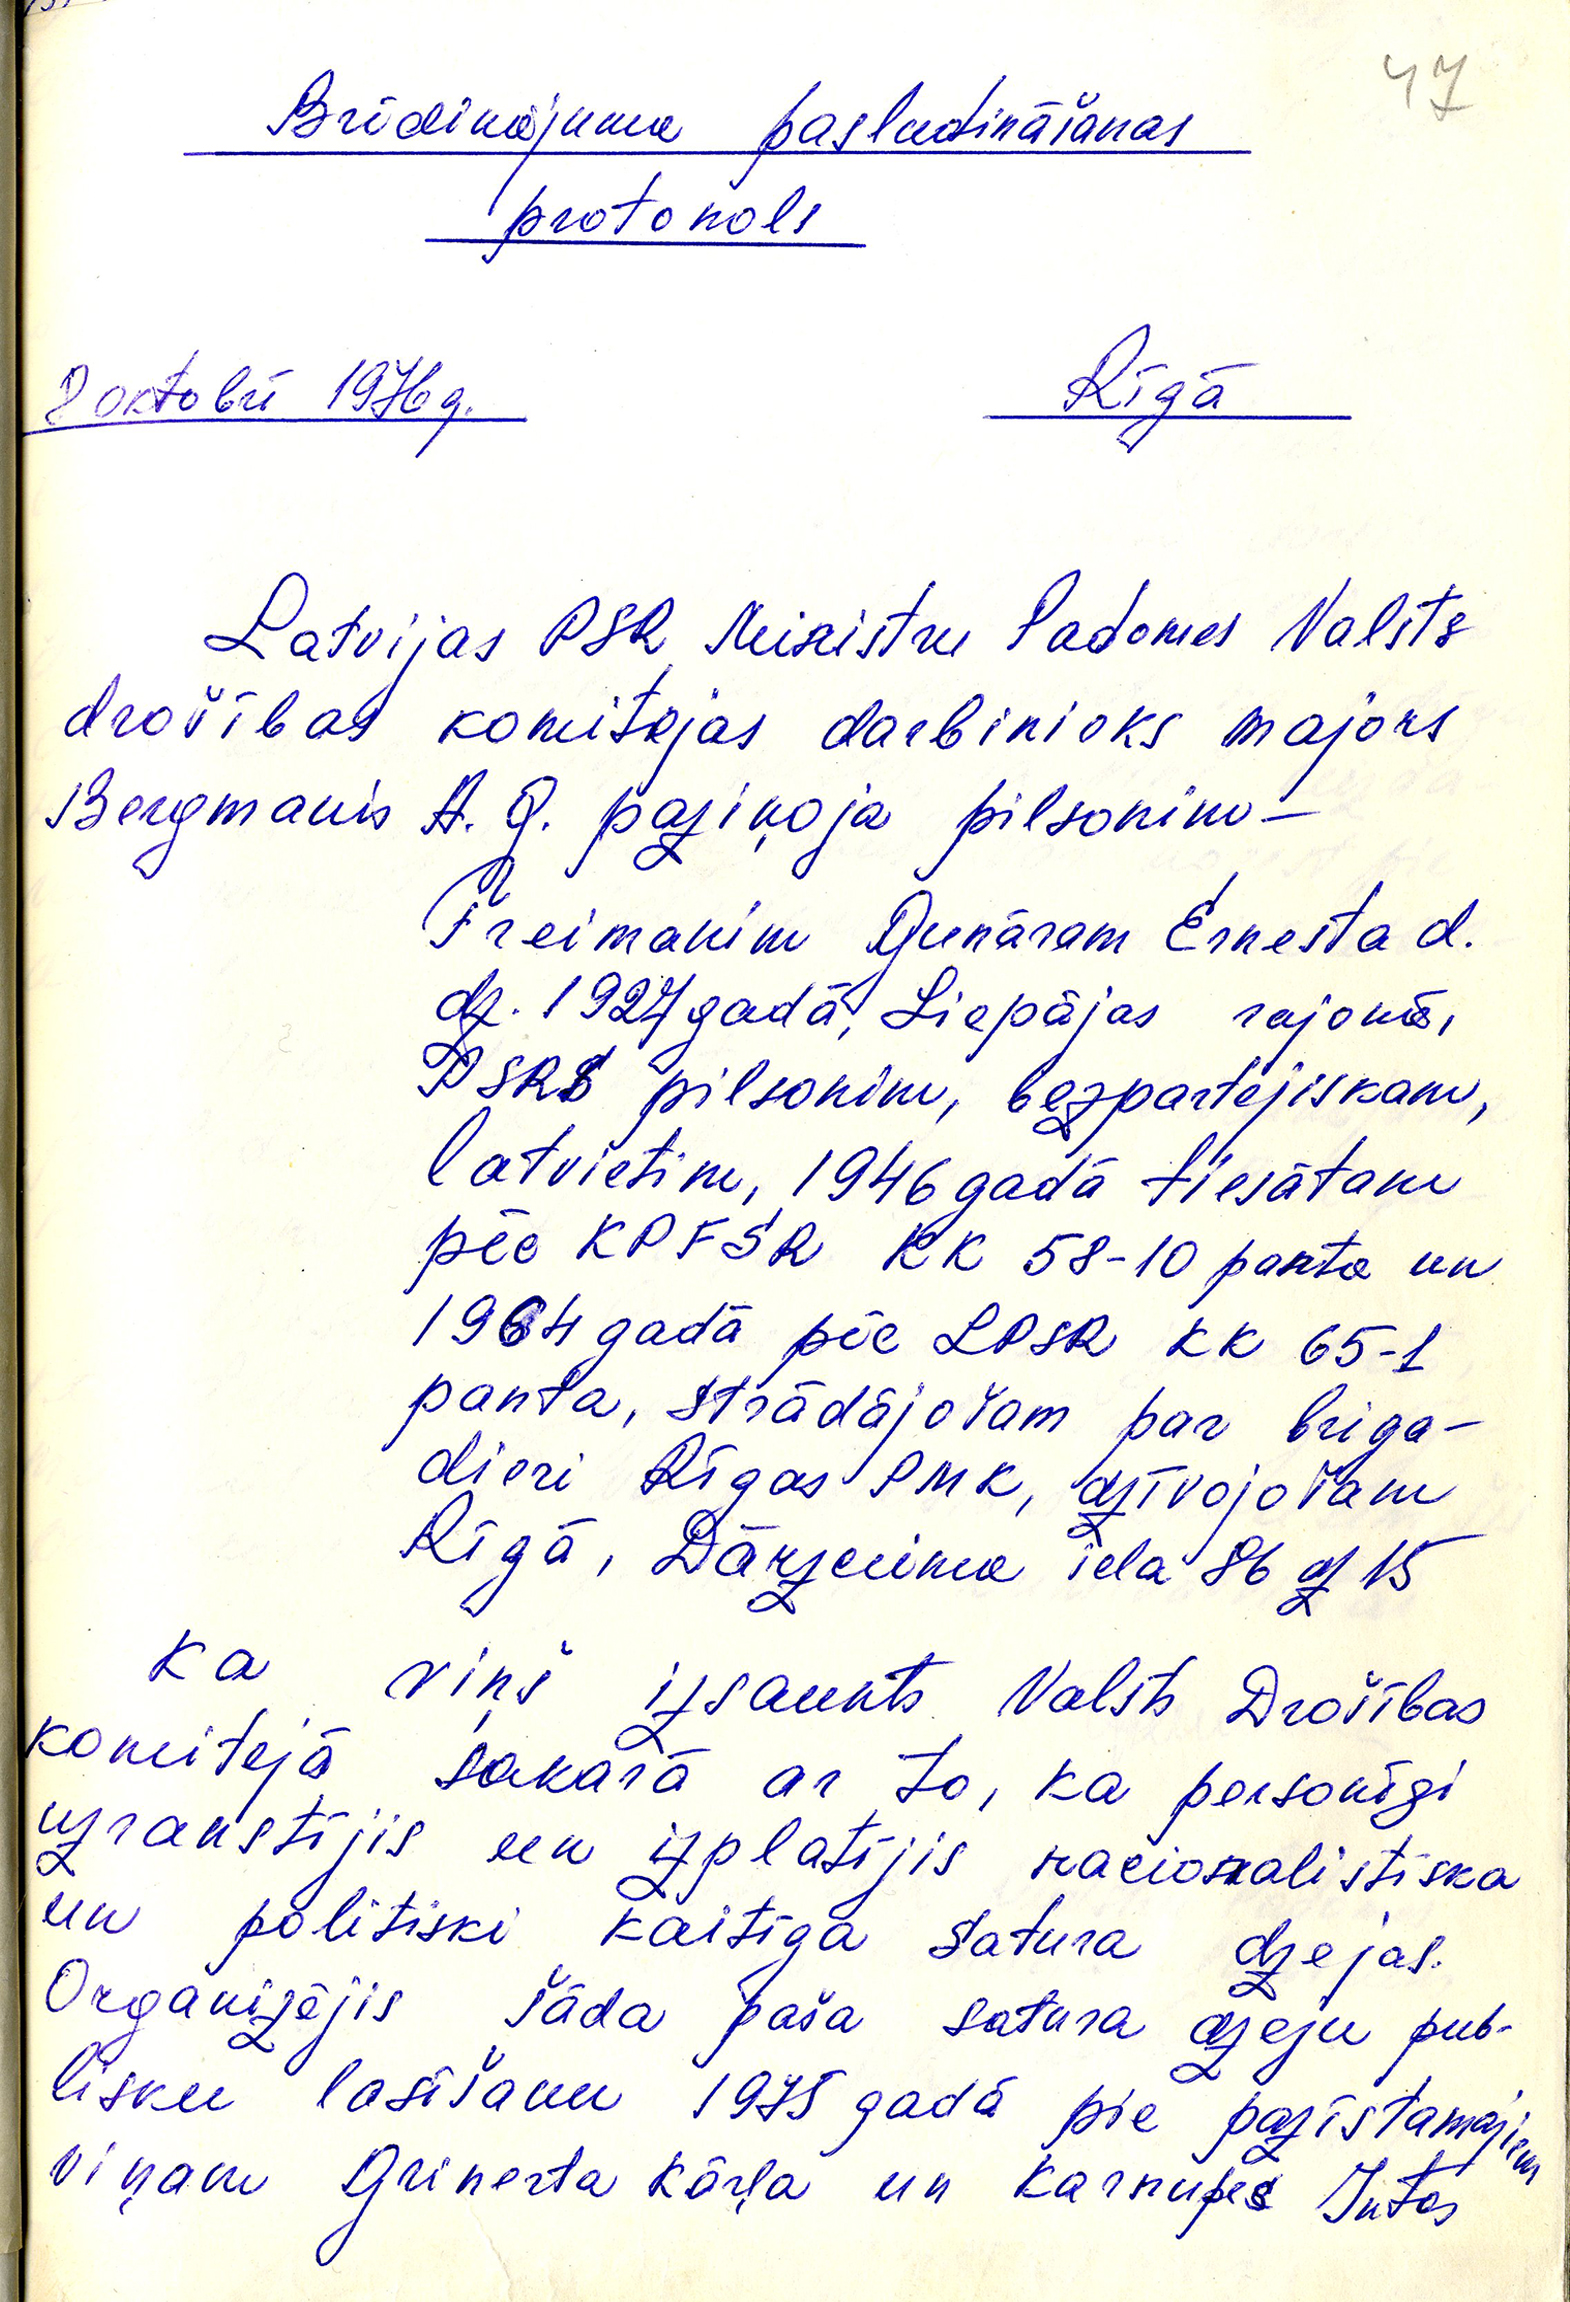 47
Brīdinājuma pasludināšanas
protokols
8 oktobrī 1976 g.
Rīgā
Latvijas PSR Ministru Padomes Valsts
drošības komitejas darbinieks majors
Bergmanis A. G. paziņoja pilsonim –
Freimanim Gunāram Ernesta d.
dz. 1927 gadā, Liepājas rajonā,
PSRS pilsonim, bezpartejiskam,
latvietim, 1946 gadā tiesātam
pēc KPFSR KK 58-10 panta un
1964 gadā pēc LPSR KK 65-1
panta, strādājošam par briga-
dieri Rīgas PMK, dzīvojošam
Rīgā, Dārzciema iela 86 dz 15
ka viņš izsaukts Valsts Drošības
komitejā sakarā ar to, ka personīgi
uzrakstījis un izplatījis nacionalistiska
un politiski kaitīga satura dzejas.
Organizējis šāda paša satura dzeju pub-
lisku lasīšanu 1975 gadā pie pazīstamajiem
viņam Grinerta Kārļa un Karnupes Intas